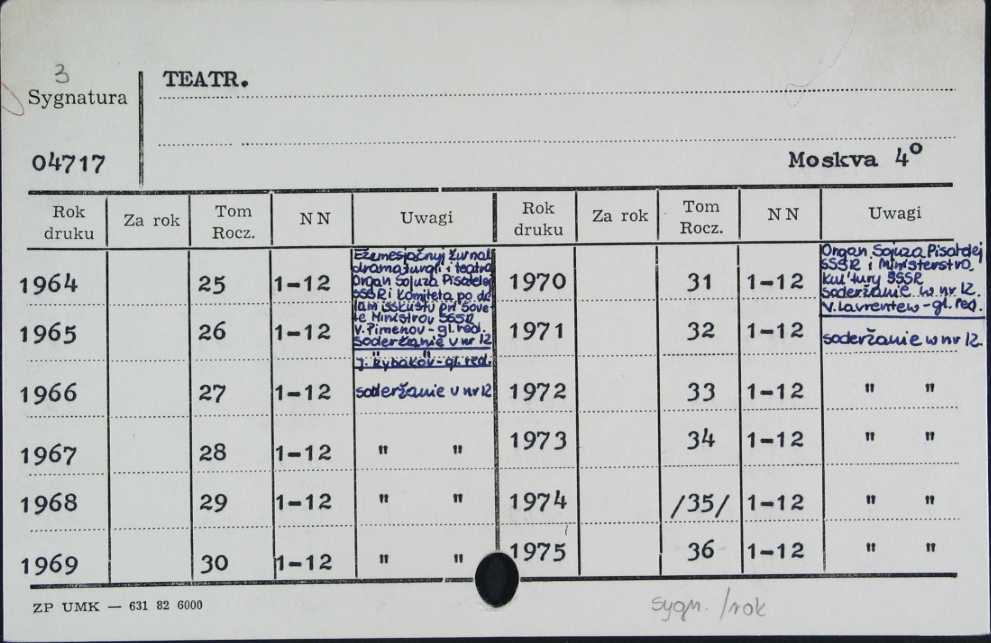 3
Sygnatura
TEATR.
04717
Moskva 4°
Rok druku Za rok Tom Rocz. NN Uwagi Rok druku Za rok Tom Rocz. NN Uwagi
1964 25 1-12
Ežemesjačnyj žurnal
dramaturgii i teatra
Organ Sojuza Pisatelej
SSSR i Komiteta po de
lam isskustv pri Sove-
te Ministrov SSSR
V. Pimenov - gl. red.
soderžanie v nr 12
1970 31 1-12
Organ Sojuza Pisatelej
SSSR i Ministerstva
Kul'tury SSSR
soderžanie w nr 12.
V. Lavrentew - gl. red.
1965 26 1-12
J. Rybakov - gl. red.
1971 32 1-12 soderžanie w nr 12.
1966 27 1-12 soderžanie v nr 12 1972 33 1-12 " "
1967 28 1-12 " " 1973 34 1-12 " "
1968 29 1-12 " " 1974 /35/ 1-12 " "
1969 30 1-12 " " 1975 36 1-12 " "
ZP UMK — 631 82 6000
sygn. /rok